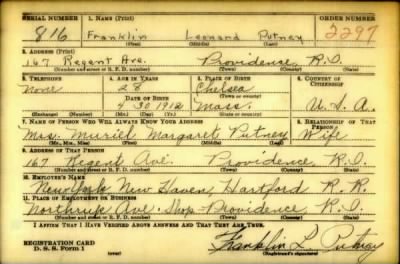 SERIAL NUMBER 1. NAME (Print) ORDER NUMBER
816 Franklin Leonard Putney 2297
(First) (Middle) (Last)
2. ADDRESS (Print)
167 Regent Ave. Providence, R.I.
(Number and street or R. F. D. number) (Town) (County) (State)
3. TELEPHONE 4. AGE IN YEARS 5. PLACE OF BIRTH 6. COUNTRY OF CITIZENSHIP
None 28 Chelsea
DATE OF BIRTH (Town or county)
4 30 1912 Mass. U.S.A.
(Exchange) (Number) (Mo.) (Day) (Yr.) (State or country)
7. NAME OF PERSON WHO WILL ALWAYS KNOW YOUR ADDRESS 8. RELATIONSHIP OF THAT PERSON
Mrs. Muriel Margaret Putney Wife
(Mr., Mrs., Miss) (First) (Middle) (Last)
9. ADDRESS OF THAT PERSON
167 Regent Ave. Providence R.I.
(Number and street or R. F. D. number) (Town) (County) (State)
10. EMPLOYER'S NAME
New York New Haven, Hartford R. R.
11. PLACE OF EMPLOYMENT OR BUSINESS
Ave. Shop Providence R.I.
(Number and street or R. F. D. number) (Town) (County) (State)
I AFFIRM THAT I HAVE VERIFIED ABOVE ANSWERS AND THAT THEY ARE TRUE.
REGISTRATION CARD
D. S. S. Form 1 Franklin L. Putney
(Registrant's signature)